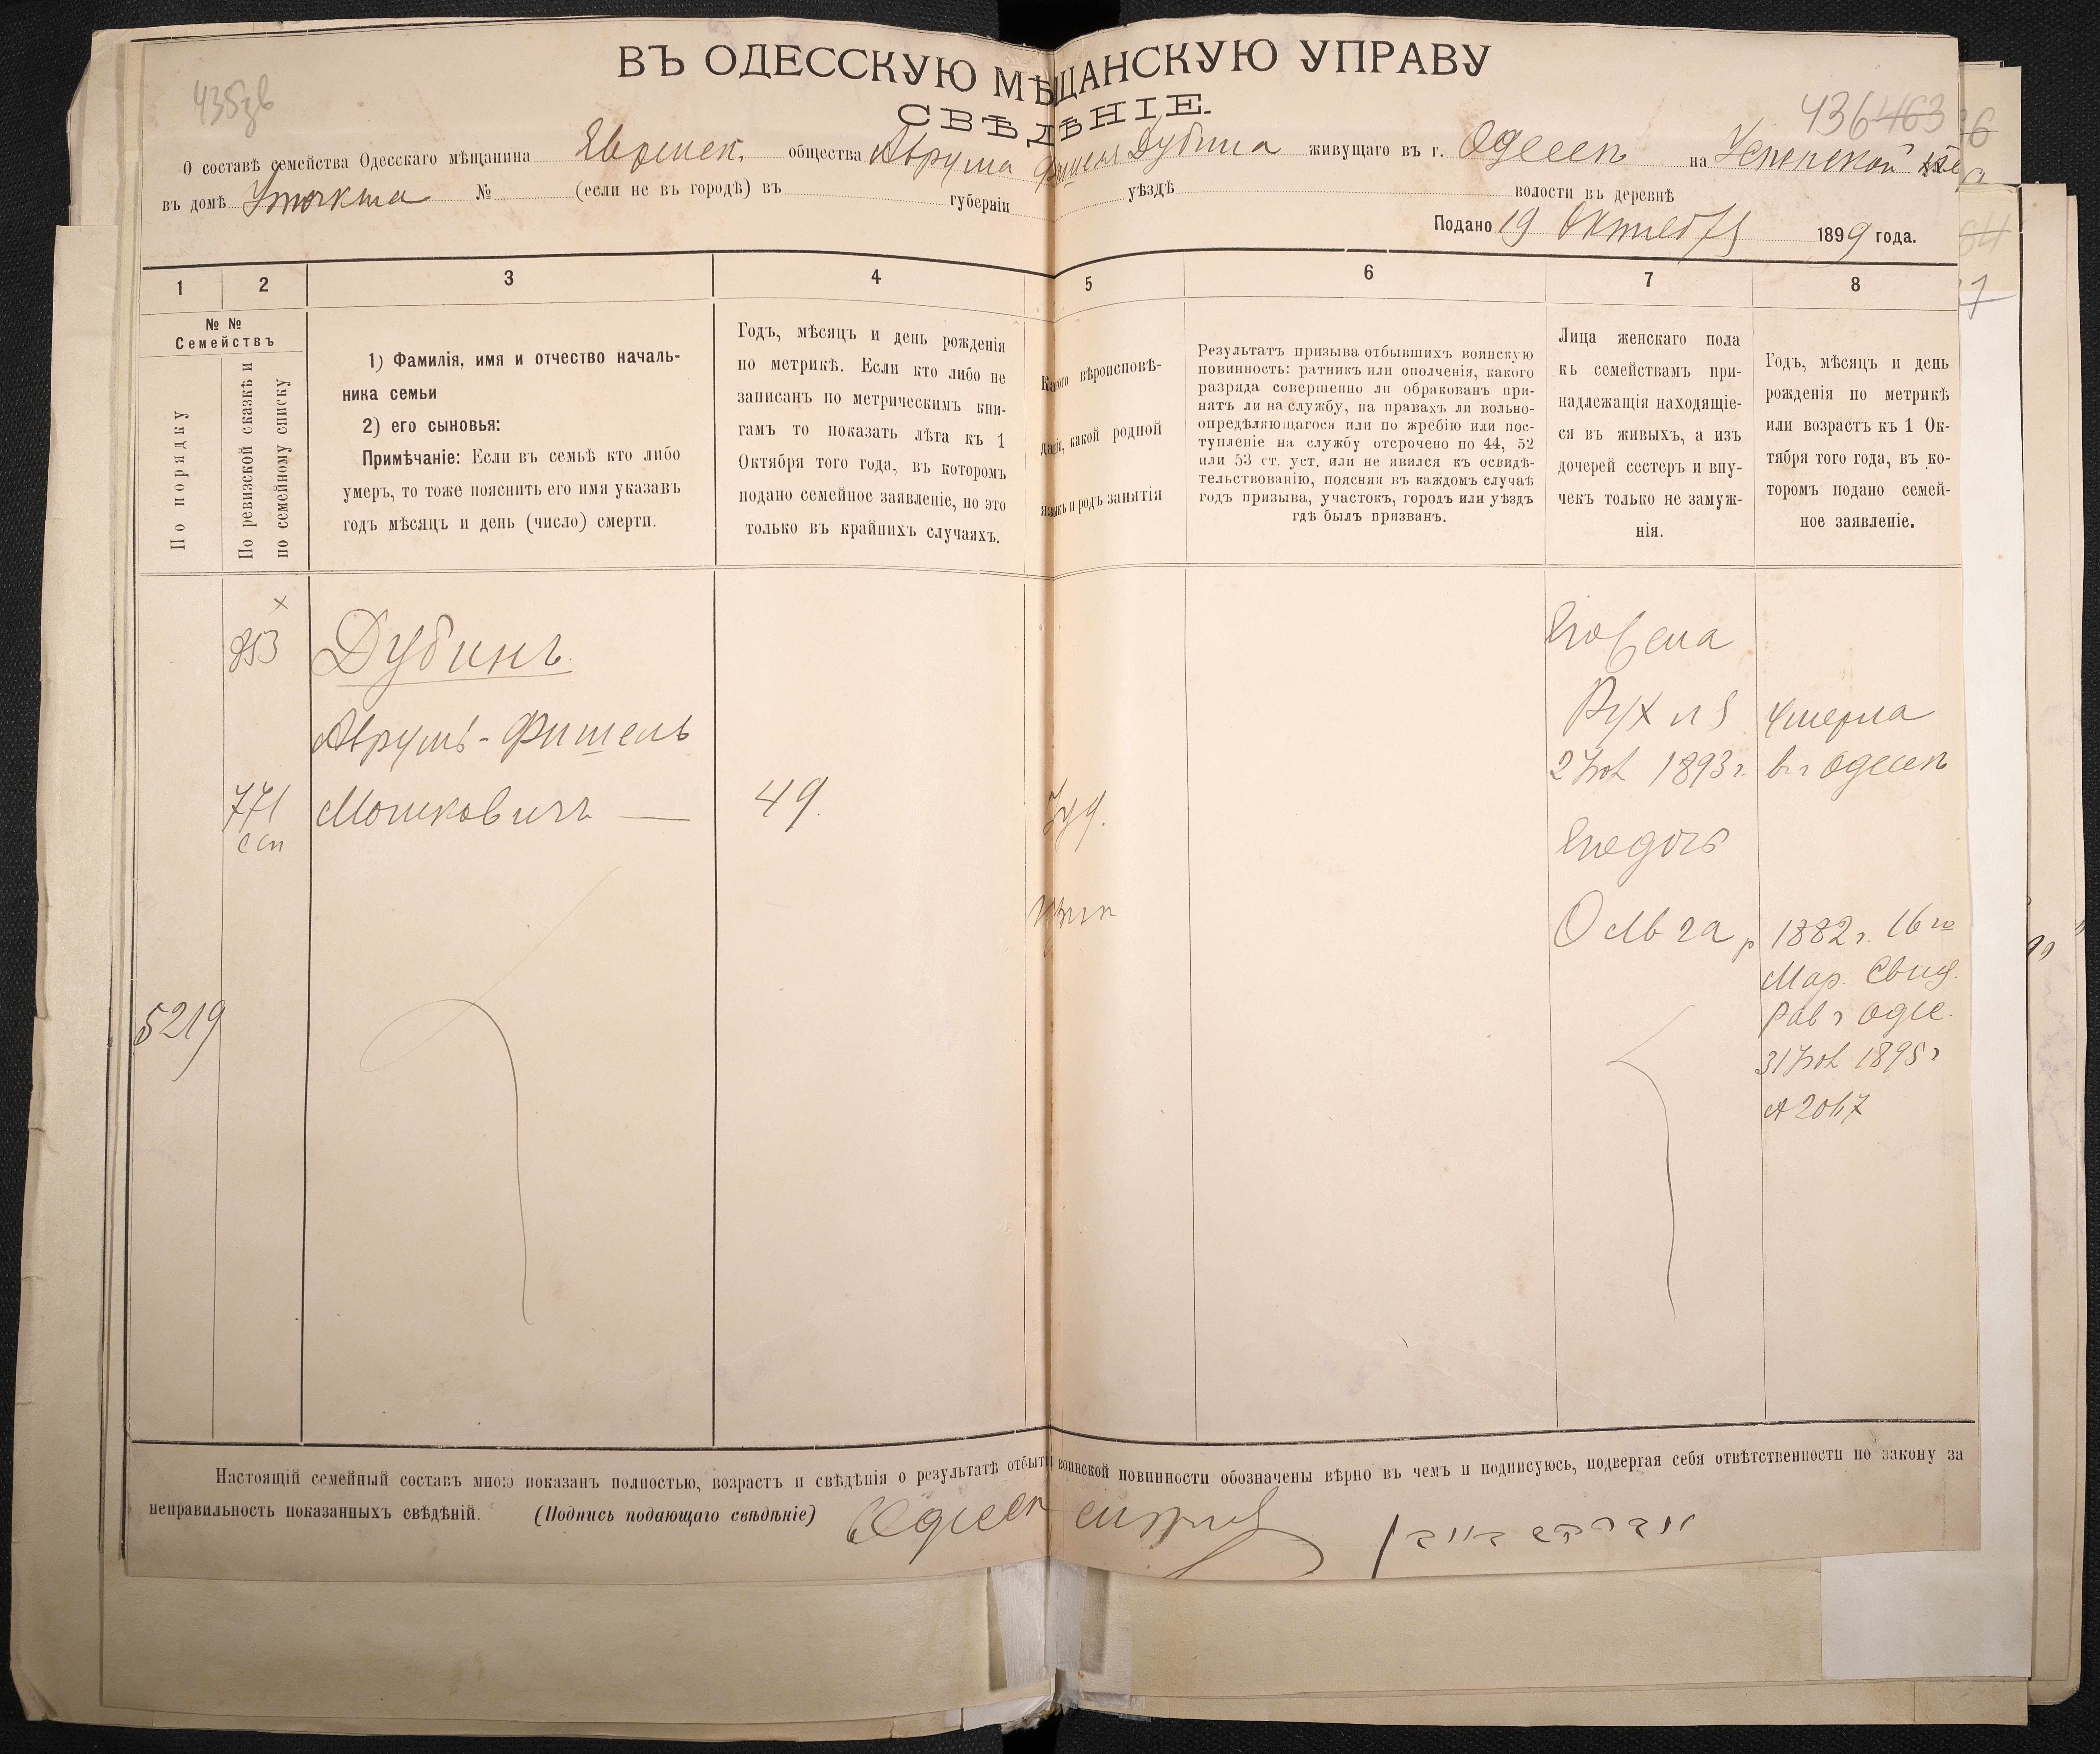 ВЪ ОДЕССКУЮ МѢЩАНСКУЮ УПРАВУ
СВѢДѢНІЕ.
435
436 463
О составѣ семейства Одесскаго мѣщанина Еврейск. общества Аврума Фишеля Дубина живущаго въ г. Одессѣ на Успенской
въ домѣ № (если не въ городѣ) въ губерніи уѣздѣ волости въ деревнѣ
Подано 19 Октября 1899 года.
1 2 3 4 5 6 7 8
№ №
Семействъ
По порядку
По ревизской сказкѣ и
по семейному списку
1) Фамилія, имя и отчество началь-
ника семьи
2) его сыновья:
Примѣчаніе: Если въ семьѣ кто либо
умеръ, то тоже пояснить его имя указавъ
годъ мѣсяцъ и день (число) смерти.
Годъ, мѣсяцъ и день рожденія
по метрикѣ. Если кто либо не
записанъ по метрическимъ кни-
гамъ то показать лѣта къ 1
Октября того года, въ которомъ
подано семейное заявленіе, но это
только въ крайнихъ случаяхъ.
Какого вѣроисповѣ-
данія, какой родной
языкъ и родъ занятія
Результатъ призыва отбывшихъ воинскую
повинность: ратникъ или ополченія, какого
разряда совершенно ли обракованъ при-
нятъ ли на службу, на правахъ ли вольно-
опредѣляющагося или по жребію или пос-
тупленіе на службу отсрочено по 44, 52
или 53 ст. уст. или не явился къ освидѣ-
тельствованію, поясняя въ каждомъ случаѣ
годъ призыва, участокъ, городъ или уѣздъ
гдѣ былъ призванъ.
Лица женскаго пола
къ семействамъ при-
надлежащія находящіе-
ся въ живыхъ, а изъ
дочерей сестеръ и вну-
чекъ только не замуж-
нія.
Годъ, мѣсяцъ и день
рожденія по метрикѣ
или возрастъ къ 1 Ок-
тября того года, въ ко-
торомъ подано семей-
ное заявленіе.
853
Дубинъ
Аврумъ-Фишель
771
Мошковичъ
49.
Іуд.
5219
Его жена
Рухля умерла
1893 г. въ Одессѣ
Его дочь
Ольга р 1882 г. 16го
Мар. Свид.
Рав г Одес.
31 1895 г
№ 2067
Настоящій семейный составъ мною показанъ полностью, возрастъ и свѣдѣнія о результатѣ отбытія воинской повинности обозначены вѣрно въ чемъ и подписуюсь, подвергая себя отвѣтственности по закону за
неправильность показанныхъ свѣдѣній. (Подпись подающаго свѣдѣніе)